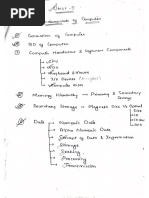 Unit-I
Fundamentals of Computer
① Generation of Computer
② BD of Computer
③ Computer Hardware & Software Components
CPU
VDU
Keyboard & Mouse
I/O Devices
④ Memory Hierarchy → Primary & Secondary
Storage
⑤ Secondary Storage → Magnetic Disk Vs Optical
Disk
CD
⑥ Data
Numeric Data
Alpha Numeric Data
Concept of Data & Information
Storage
Processing
Transmission